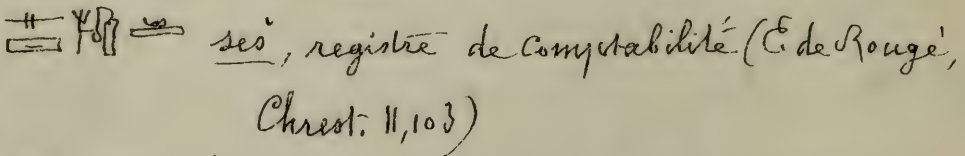 seš, registre de Comptabilité (E de Rougé,
Chrest. II, 103)